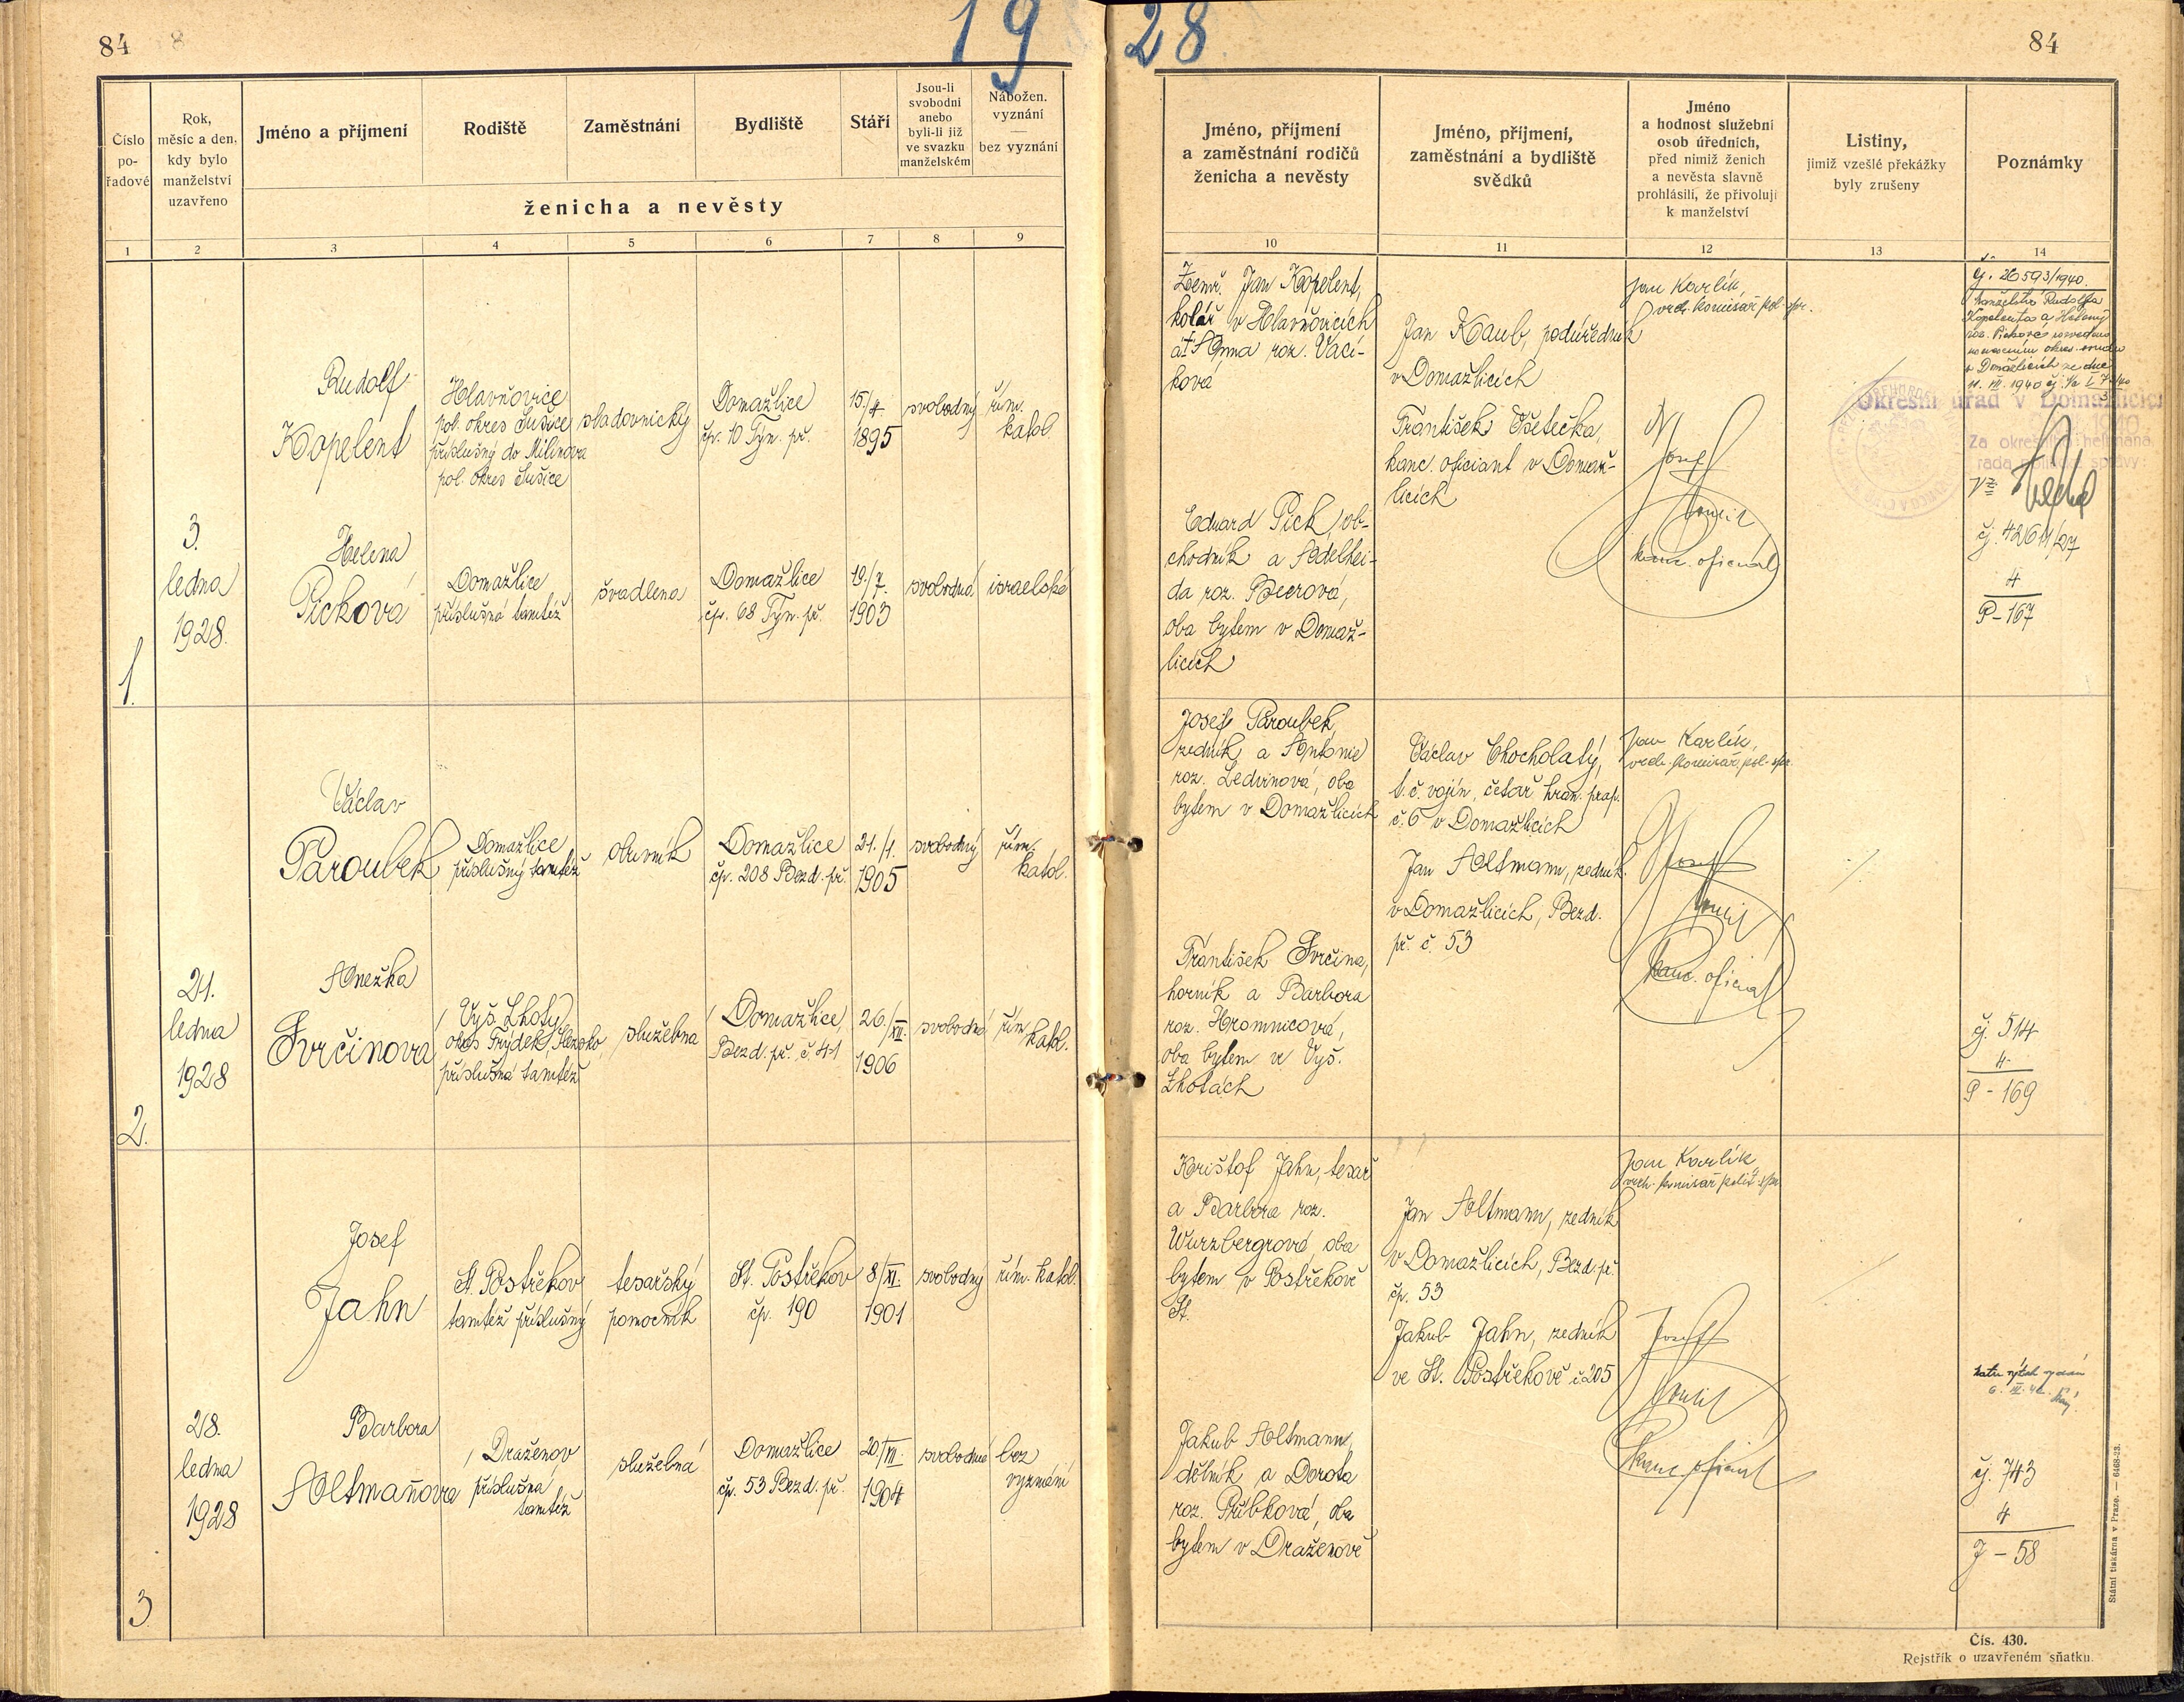 84
19 28
84
Číslo
po-
řadové
Rok,
měsíc a den,
kdy bylo
manželství
uzavřeno
Jméno a příjmení
Rodiště
Zaměstnání
Bydliště
Stáří
Jsou-li
svobodni
anebo
byli-li již
ve svazku
manželském
Nábožen.
vyznání
—
bez vyznání
ženicha a nevěsty
1 2 3 4 5 6 7 8 9
Jméno, příjmení
a zaměstnání rodičů
ženicha a nevěsty
Jméno, příjmení,
zaměstnání a bydliště
svědků
Jméno
a hodnost služební
osob úředních,
před nimiž ženich
a nevěsta slavně
prohlásili, že přivolují
k manželství
Listiny,
jimiž vzešlé překážky
byly zrušeny
Poznámky
10 11 12 13 14
1.
3.
ledna
1928.
Rudolf
Kopelent
Hlavňovice
pol. okres Sušice
příslušný do Milínova
pol. okres Sušice
sladovnický
Domažlice
čp. 10 Týn. př.
15./4.
1895
svobodný
řím.
katol.
Helena
Picková
Domažlice
příslušná tamtéž
švadlena
Domažlice
čp. 68 Týn. př.
19./7.
1903
svobodná
israelské
Zemř. Jan Kopelent,
kolář v Hlavňovicích
a † Anna roz. Vací-
ková
Eduard Pick, ob-
chodník a Adelhei-
da roz. Beerová,
oba bytem v Domaž-
licích
Jan Kaub, podúředník
v Domažlicích
František Všetečka,
kanc. oficiant v Domaž-
licích
Jan Karlík,
vrch. komisař pol. spr.
Josef
kanc. oficiál
čj. 26593/1940.
Manželství Rudolfa
Kopelenta a Heleny
roz. Pickové
okres. soudu
v Domažlicích ze dne
1940 čj.
Okresní úřad v Domažlicích
1940
Za okresního hejtmana,
rada politické správy:
vz
čj. 42611/27
4
P-167
2.
21.
ledna
1928
Václav
Paroubek
Domažlice
příslušný tamtéž
obuvník
Domažlice
čp. 208 Bezd. př.
21./1.
1905
svobodný
řím.
katol.
Anežka
Svrčinova
Vyš. Lhoty
okres Frýdek, Slezsko,
příslušná tamtéž
služebna
Domažlice,
Bezd. př. č. 41
26./XII.
1906
svobodná
řím.
katol.
Josef Paroubek,
zedník a Antonie
roz. Ledvinová, oba
bytem v Domažlicích
František Svrčina,
horník a Barbora
roz. Hromnicová,
oba bytem ve Vyš.
Lhotách
Václav Chocholatý,
t. č. vojín, četař hran. prap.
č. 6 v Domažlicích
Jan Altmann, zedník
v Domažlicích, Bezd.
př. č. 53
Jan Karlík,
vrch. komisař pol. spr.
Josef
kanc. oficiál
čj. 514
4
P - 169
3
28.
ledna
1928
Josef
Jahn
St. Postřekov
tamtéž příslušný
tesařský
pomocník
St. Postřekov
čp. 190
8/XI.
1901
svobodný
řím. katol.
Barbora
Altmaňova
Draženov
příslušná
tamtéž
služebná
Domažlice
čp. 53 Bezd. př.
20/VII.
1904
svobodná
bez
vyznání
Krištof Jahn, tesař
a Barbora roz.
Wurzbergrová, oba
bytem v Postřekově
St.
Jakub Altmann,
dělník a Dorota
roz. Přibková, oba
bytem v Draženově
Jan Altmann, zedník
v Domažlicích, Bezd. př.
čp. 53
Jakub Jahn, zedník
ve St. Postřekově č. 205
Jan Karlík
vrch. komisař polit. spr.
Josef
kanc. oficiál
čj. 743
4
J - 58
Státní tiskárna v Praze. — 6468-23.
Čís. 430.
Rejstřík o uzavřeném sňatku.